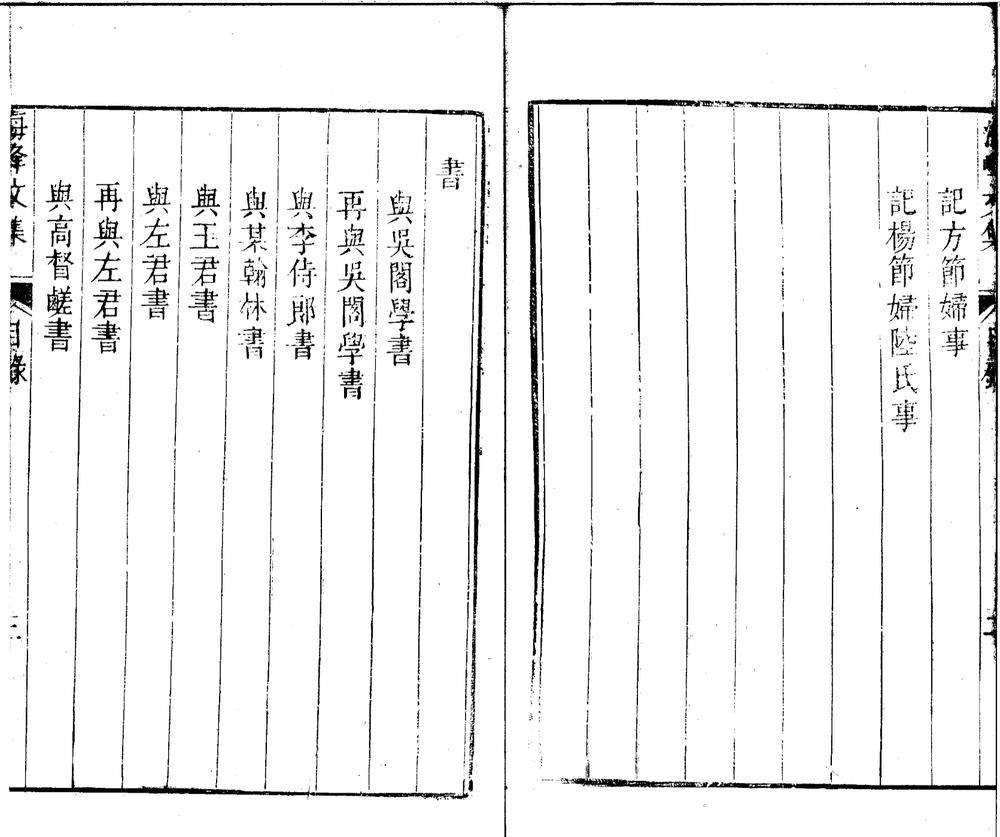 記方節婦事
記楊節婦陸氏事
書
與吳閣學書
再與吳閣學書
與李侍郎書
與某翰林書
與王君書
與左君書
再與左君書
與高督鹺書
海峰文集
目錄
三